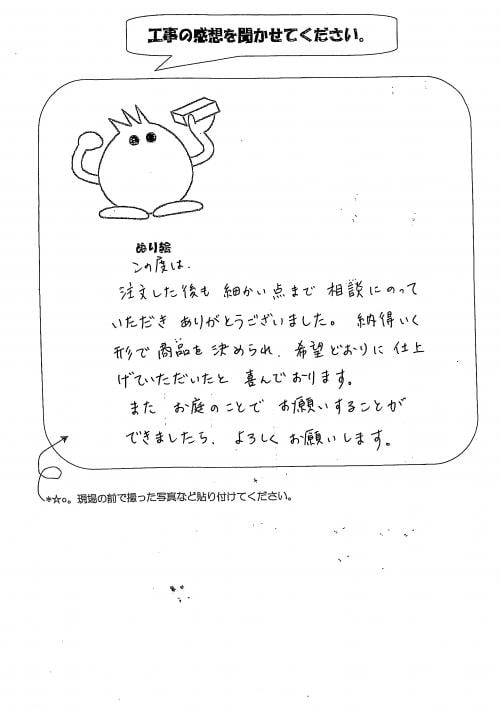 工事の感想を聞かせてください。
ぬり絵
この度は、
注文した後も 細かい点まで 相談にのって
いただき ありがとうございました。 納得いく
形で 商品を 決められ、希望どおりに 仕上
げていただいたと 喜んでおります。
また お庭のことで お願いすることが
できましたら、よろしく お願いします。
*☆○。現場の前で撮った写真など貼り付けてください。